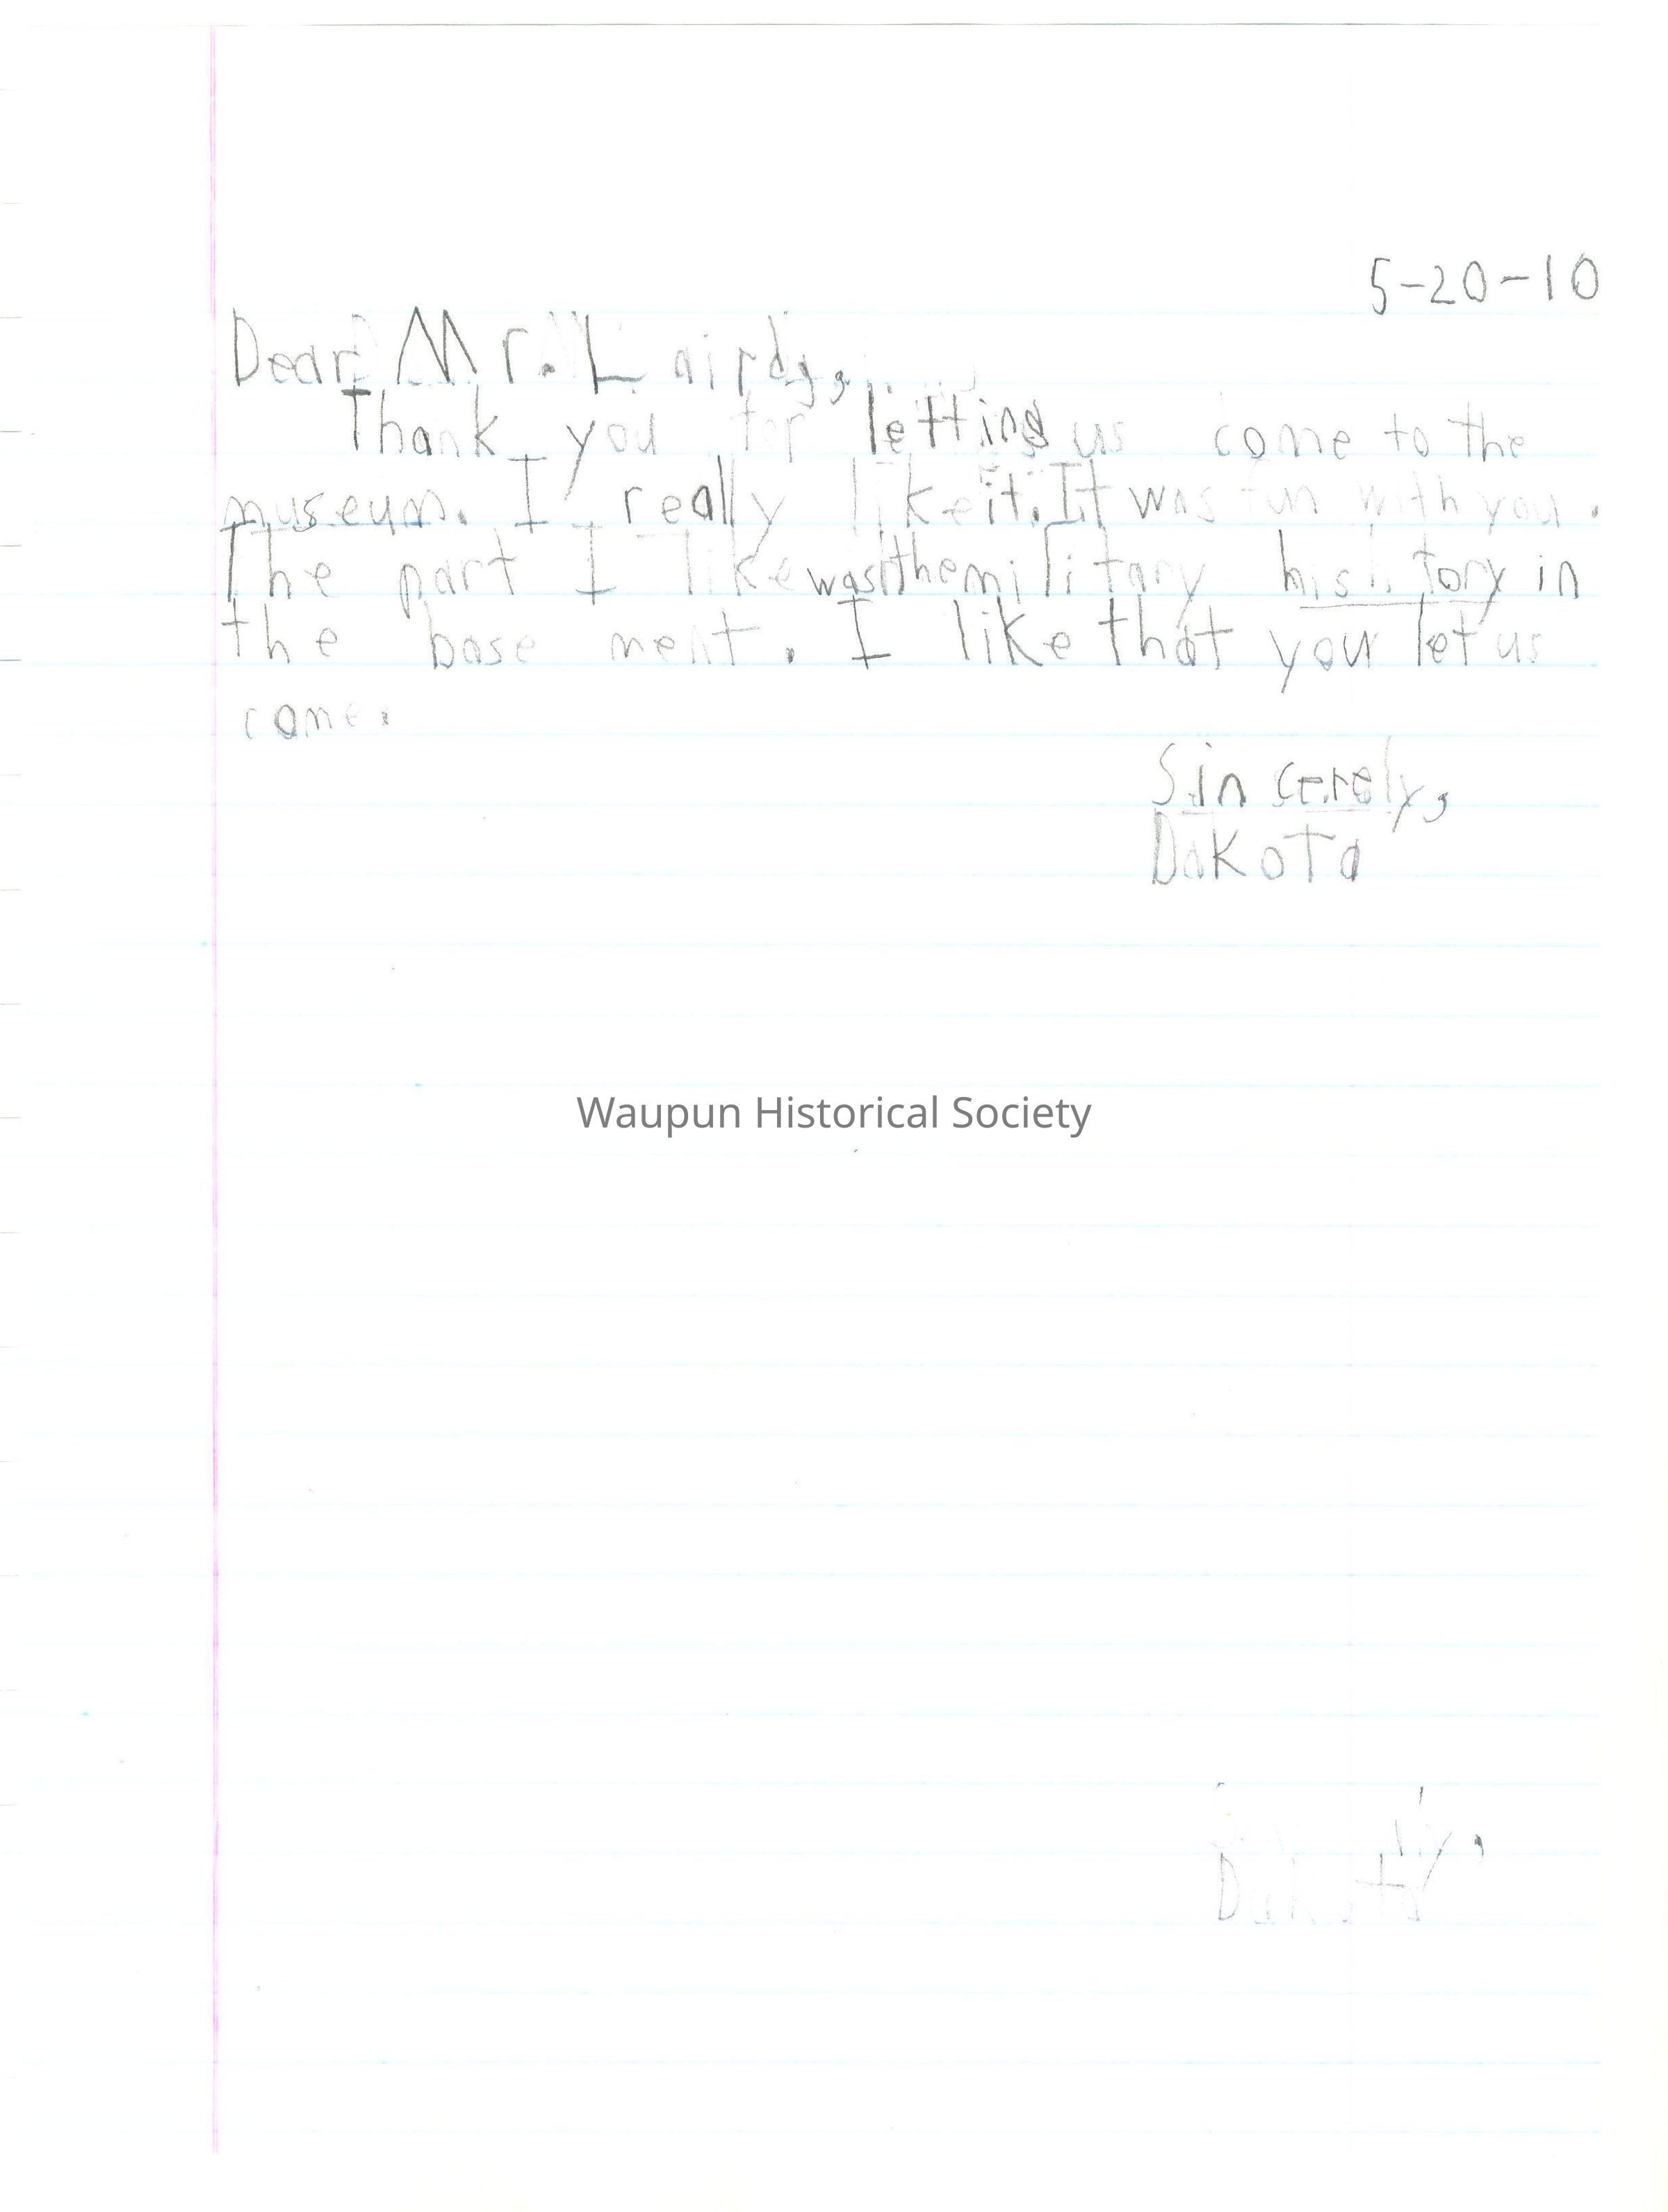 5-20-10
Dear Mr. Lairdg,
Thank you for letting us come to the
museum. I really like it. It was fun with you.
The part I like was the military history in
the base ment. I like that you let us
come.
Sincerely,
Dakota
Waupun Historical Society
Dakota